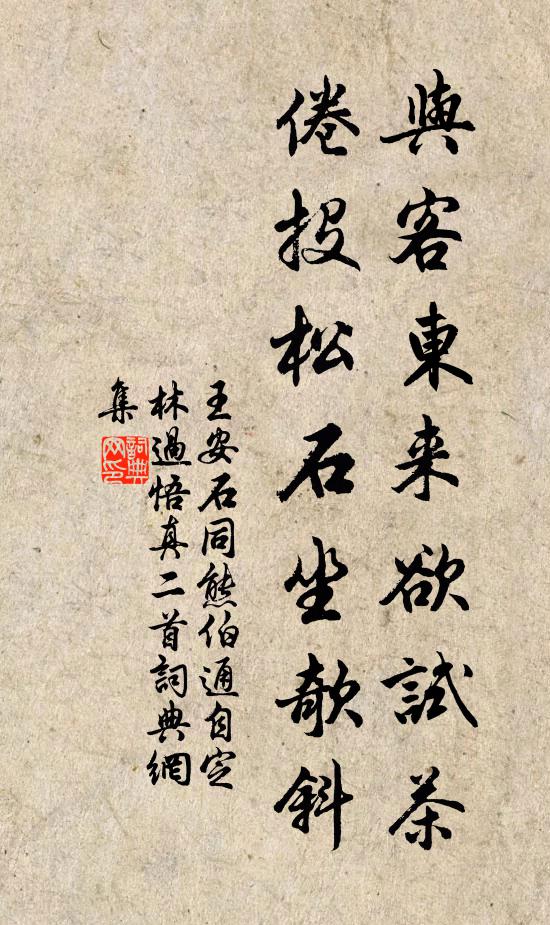 與客東來欲試茶
倦投松石坐欹斜
王安石同熊伯通自定
林過悟真二首詞典網
集
詞典
网印